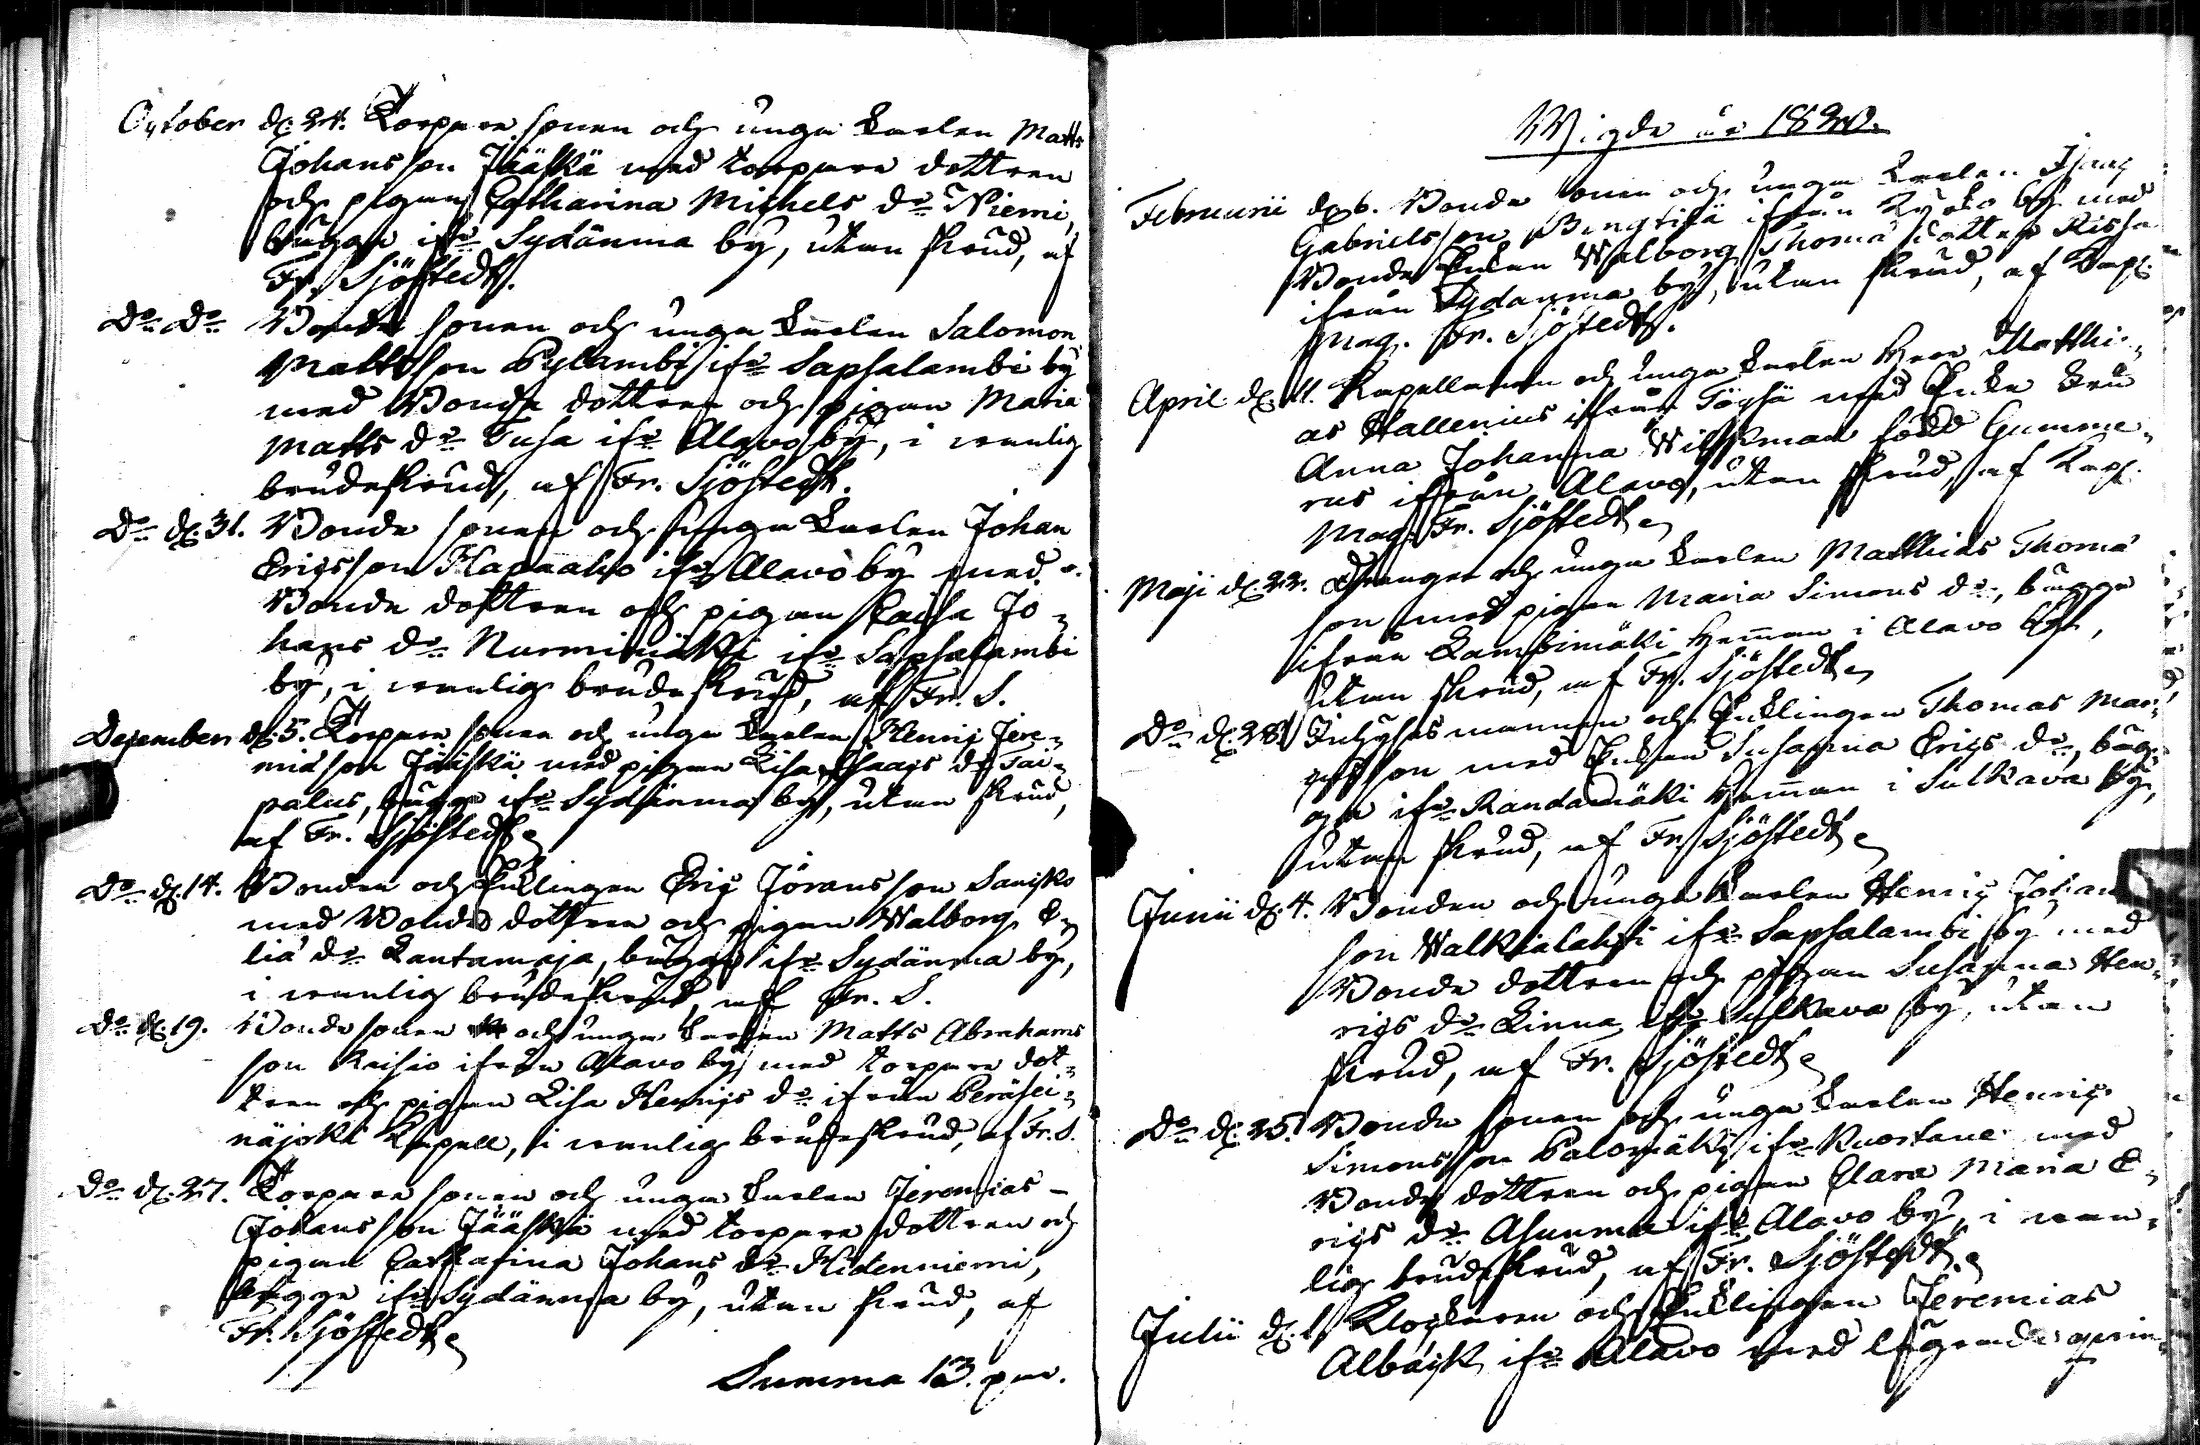 October d. 24. Torpare sonen och unga Karlen Matts
Johansson Jääskä med torpare dottren
och pigan Catharina Michels dr Niemi,
bägge ifr Sydänma by, utan skrud, af
Fr. Sjöstedt.
Do Do Bonde sonen och unga Karlen Salomon
Mattsson Pylambi ifr Sapsalambi by
med Bonde dottren och pigan Maria
Matts dr Tusa ifr Alavo by, i vanlig
brudeskrud, af Fr. Sjöstedt.
Do d. 31. Bonde sonen och unga Karlen Johan
Ericsson Hapaaho ifr Alavo by med
Bonde dottren och pigan Caisa Jo-
hans dr Nurmimäki ifr Sapsalambi
by, i vanlig brudeskrud, af Fr. S.
December d. 5. Torpare sonen och unga Karlen Henric Jere-
miasson Jääskä med pigan Lisa Isaacs dr Tai-
palus, bägge ifr Sydänma by, utan skrud,
af Fr. Sjöstedt
Do d. 14. Bonden och Enklingen Eric Jöransson
med Bonde dottren och pigan Walborg E-
liæ dr Rantamaja, bägge ifr Sydänma by,
i vanlig brudeskrud af Fr. S.
Do d. 19. Bonde sonen och unga Karlen Matts Abrahams
son Reisio ifrån Alavo by med torpare dot-
tren och pigan Lisa Henrics dr ifrån Peräsei-
näjoki Kapell, i vanlig brudeskrud, af Fr. S.
Do d. 27. Torpare sonen och unga Karlen Jeremias
Johansson Jääskä med torpare dottren och
pigan Catharina Johans dr Hidenniemi,
bägge ifr Sydänma by, utan skrud, af
Fr. Sjöstedt
Summa 13. par.
Wigde år 1820.
Februarii d. 6. Bonde sonen och unga Karlen Isaac
Gabrielsson ifrån by med
Bonde Enkan Walborg Thomæ dotter Rissa
ifrån Sydänma by, utan skrud, af Kapl.
Mag. Fr. Sjöstedt.
April d. 11. Kapellanen och unga Karlen Herr Matthi-
as Hallenius ifrån Töysä med Enke Fru
Anna Johanna Wilskman född Gumme-
rus ifrån Alavo, utan skrud, af Kapl.
Mag. Fr. Sjöstedt
Maji d. 22. Drengen och unga Karlen Matthias Thomæ
son med pigan Maria Simons dr, bägge
ifrån Lambimäki Hemman i Alavo by,
utan skrud, af Fr. Sjöstedt
Do d. 28. Inhysesmannen och Enklingen Thomas Mar-
cusson med Enkan Susanna Erics dr, bäg-
ge ifr Randamäki Hemman i Sulkava by,
utan skrud, af Fr. Sjöstedt
Junii d. 4. Bonden och unga Karlen Henric Johans
son Walkialahti ifr Sapsalambi by med
Bonde dottren och pigan Susanna Hen-
rics dr Linna ifr Sulkava by, utan
skrud, af Fr. Sjöstedt
Do d. 25. Bonde sonen och unga Karlen Henric
Simonsson Palomäki ifr Kuortane med
Bonde dottren och pigan Clara Maria E-
rics dr Asunma ifr Alavo by, i van-
lig brudeskrud, af Fr. Sjöstedt
Julii d. 1. Klockaren och Enklingen Jeremias
Albäck ifr Alavo med